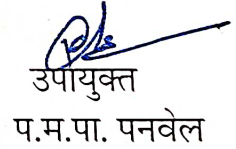 उपायुक्त
प.म.पा. पनवेल